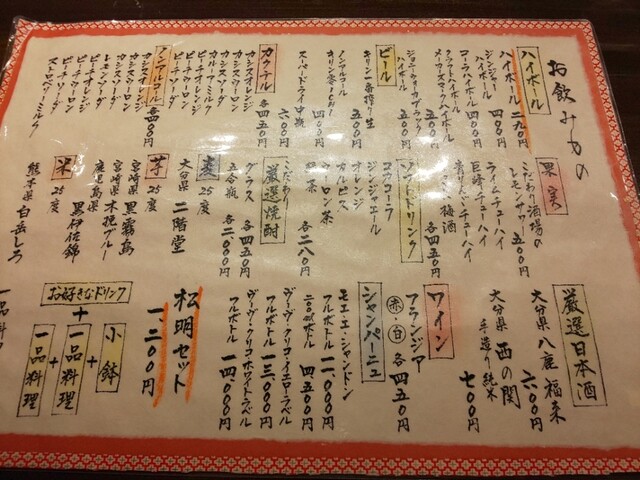 お飲みもの
ハイボール
ハイボール 二九〇円
ジンジャーハイボール 四〇〇円
コーラハイボール 四〇〇円
クラフトハイボール
メーカーズマークハイボール
ジョニーウォーカーブラック
ハイボール 各四五〇円
ビール
キリン一番搾り生 四五〇円
ノンアルコール
キリン零ICHI 四〇〇円
スーパードライ中瓶 六〇〇円
カクテル 各四五〇円
カシスオレンジ
カシスウーロン
カシスソーダ
カルーアミルク
ピーチオレンジ
ピーチウーロン
ピーチソーダ
ノンアルコール 各四〇〇円
カシスオレンジ
カシスウーロン
カシスソーダ
レモンソーダ
ピーチオレンジ
ピーチソーダ
ピーチウーロン
ストロベリーミルク
果実
こだわり酒場の
レモンサワー 五〇〇円
ライムチューハイ
巨峰チューハイ
青りんごチューハイ
梅酒
各四五〇円
ソフトドリンク
コカコーラ
ジンジャエール
オレンジ
ウーロン茶
緑茶
各二八〇円
厳選焼酎
こだわり
グラス 各四五〇円
五合瓶 各二、〇〇〇円
麦 25度
大分県 二階堂
芋 25度
宮崎県 黒霧島
宮崎県 木挽ブルー
鹿児島県 黒伊佐錦
米 25度
熊本県 白岳しろ
厳選日本酒
大分県 八鹿 福来 六〇〇円
大分県 西の関
手造り純米 七〇〇円
ワイン
フランジア
赤・白 各四五〇円
シャンパーニュ
モエ・エ・シャンドン
フルボトル 一一、〇〇〇円
二〇〇mlボトル 四、五〇〇円
ヴーヴ・クリコ・イエローラベル
フルボトル 一三、〇〇〇円
ヴーヴ・クリコ ホワイトラベル
フルボトル 一四、〇〇〇円
松明セット
一、三〇〇円
お好きなドリンク
+
小鉢
+
一品料理
+
一品料理
一品料理